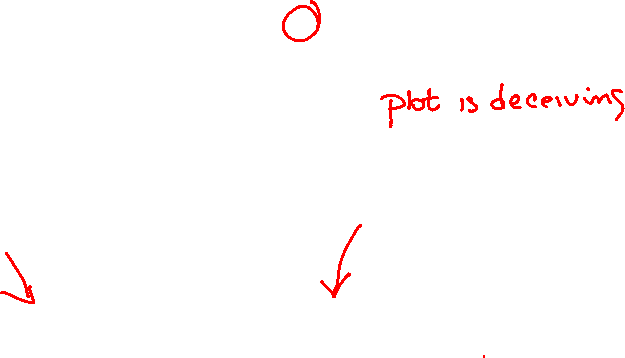 plot is deceiving